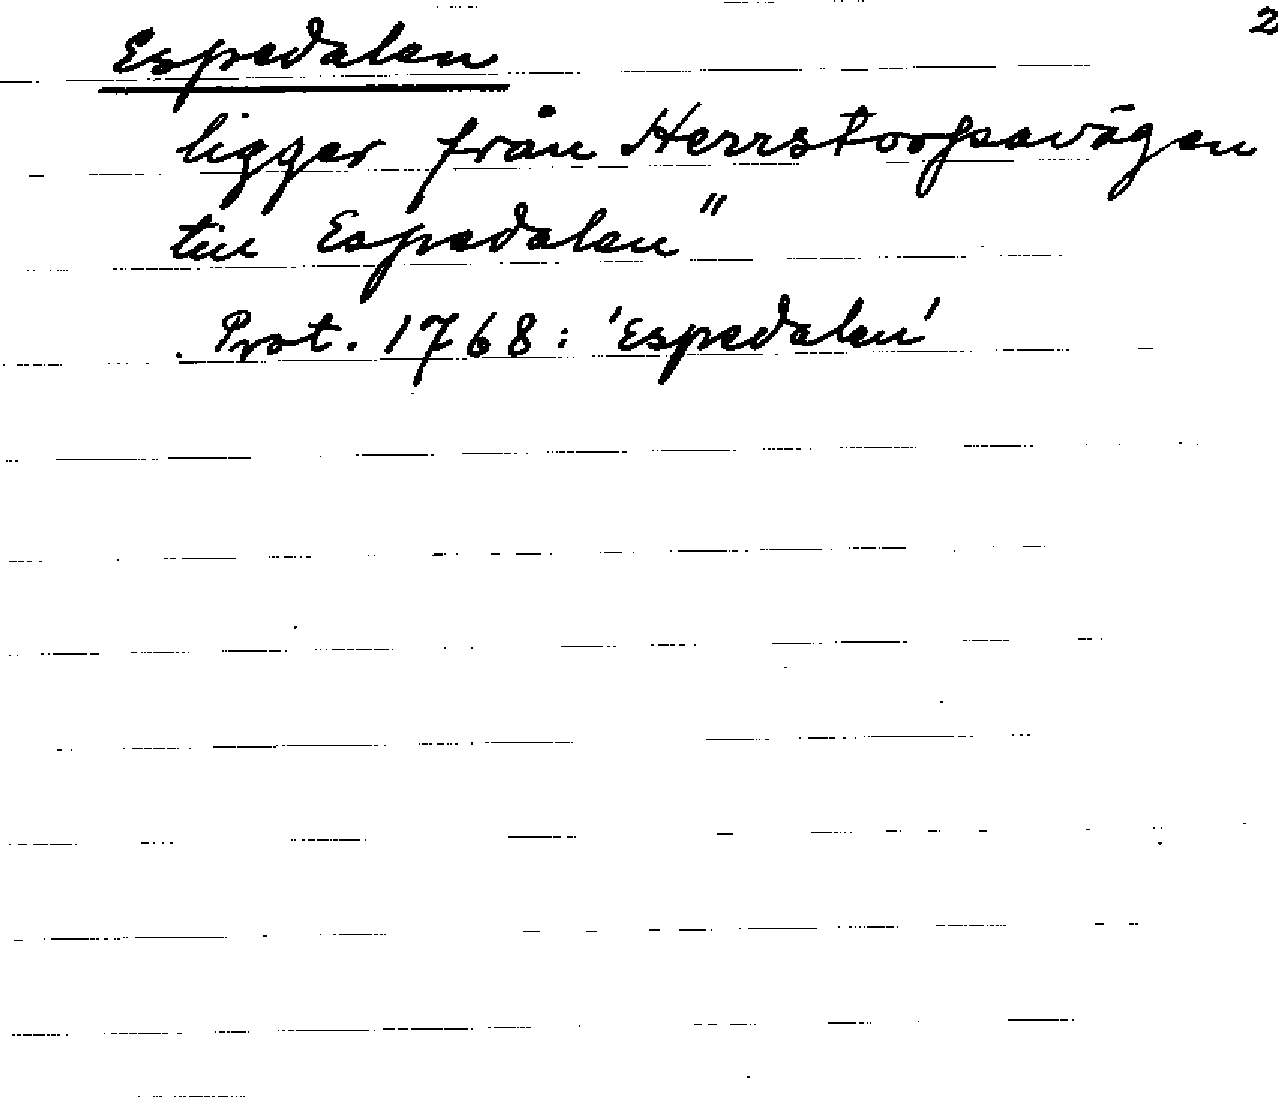 2
Espedalen
ligger från Herrstorpavägen
till Espedalen"
Prot. 1768: 'Espedalen'